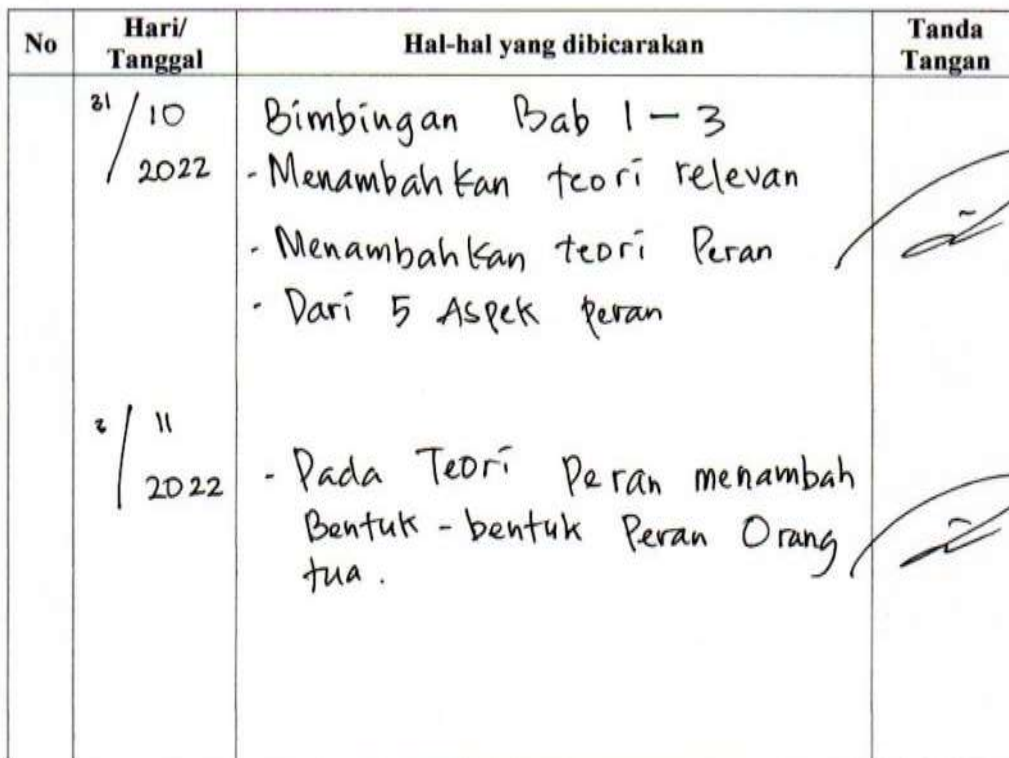 No Hari/ Tanggal Hal-hal yang dibicarakan Tanda Tangan
31/10 2022
Bimbingan Bab 1 - 3
- Menambahkan teori relevan
- Menambahkan teori Peran
- Dari 5 Aspek peran
/ 11 2022
- Pada Teori Peran menambah
Bentuk - bentuk Peran Orang
tua.